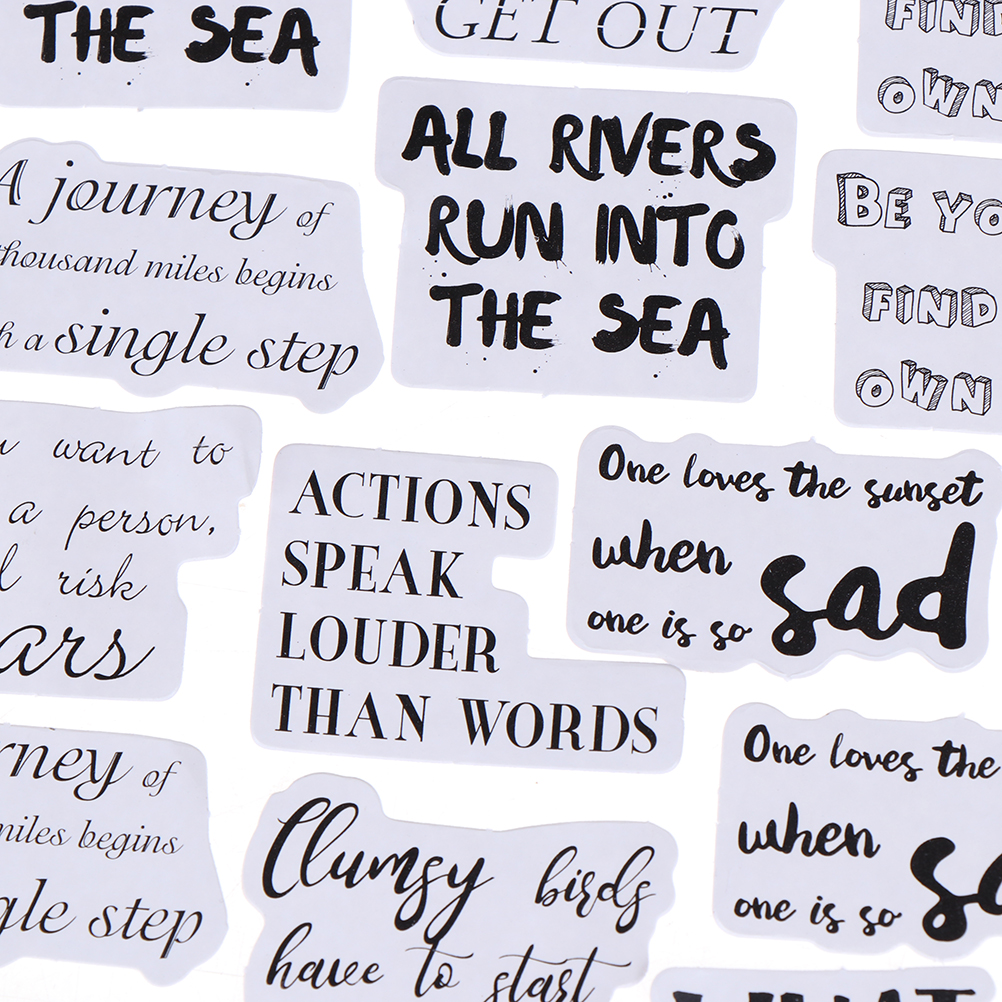 THE SEA
GET OUT
FIND
OWN
A journey of
thousand miles begins
a single step
ALL RIVERS
RUN INTO
THE SEA
BE YO
FIND
OWN
want to
a person,
risk
ars
ACTIONS
SPEAK
LOUDER
THAN WORDS
One loves the sunset
when sad
one is so
rney of
miles begins
gle step
Clumsy birds
have to start
One loves the
when
one is so